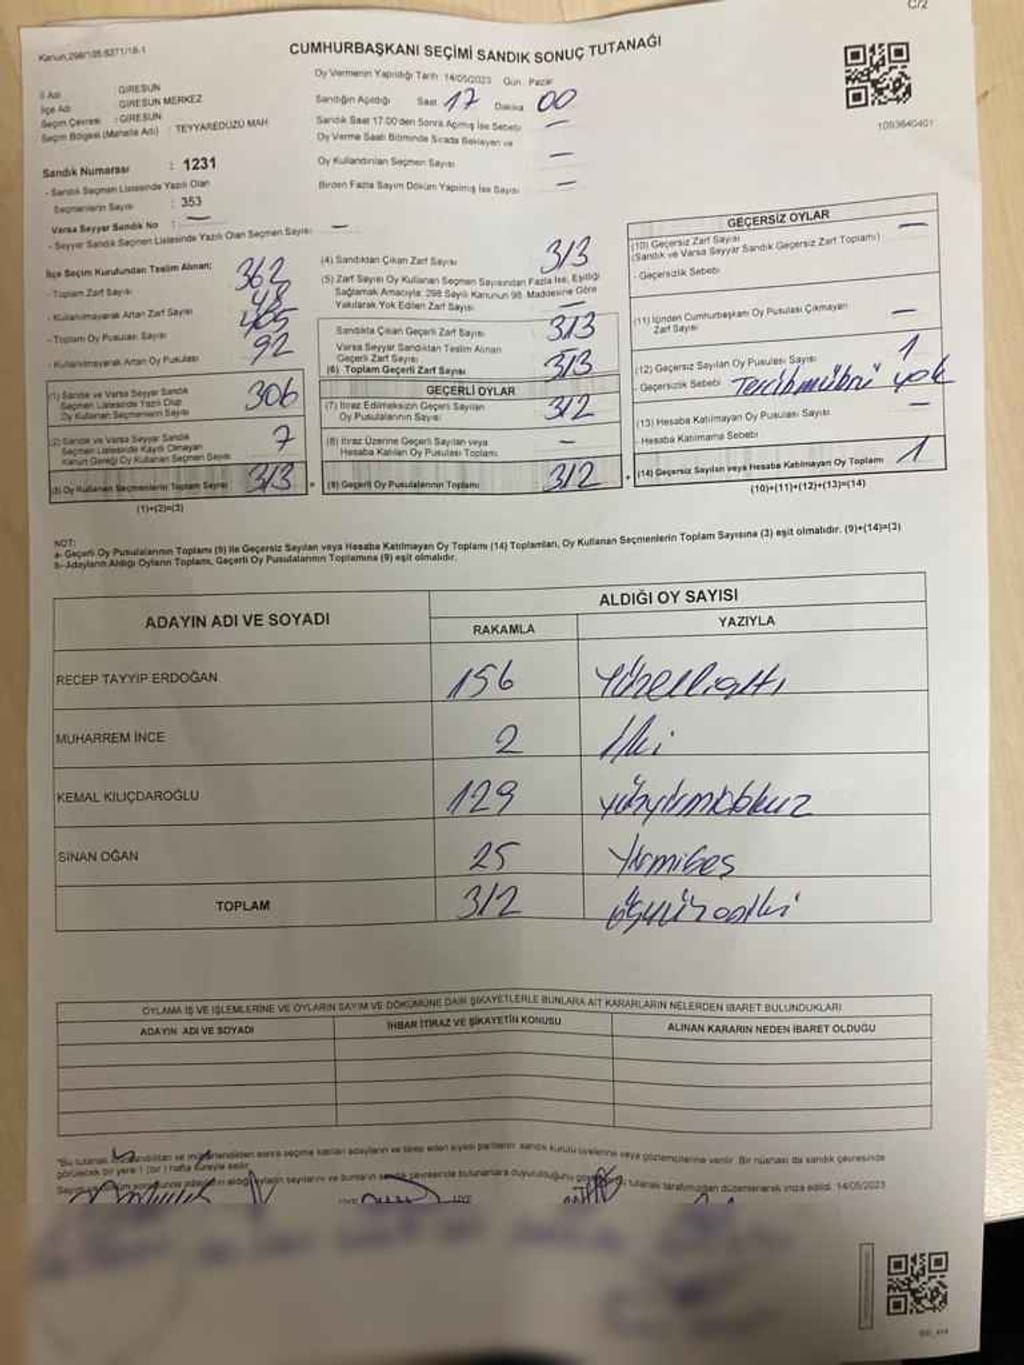 C/2
CUMHURBAŞKANI SEÇİMİ SANDIK SONUÇ TUTANAĞI
Oy Vermenin Yapıldığı Tarih : 14/05/2023 Gün : Pazar
İl Adı : GİRESUN
İlçe Adı : GİRESUN MERKEZ
Seçim Çevresi : GİRESUN
Seçim Bölgesi (Mahalle Adı) : TEYYAREDÜZÜ MAH
Sandık Numarası : 1231
- Sandık Seçmen Listesinde Yazılı Olan
Seçmenlerin Sayısı : 353
Varsa Seyyar Sandık No : —
- Seyyar Sandık Seçmen Listesinde Yazılı Olan Seçmen Sayısı —
Sandığın Açıldığı Saat 17 Dakika 00
Sandık Saat 17.00'den Sonra Açılmış İse Sebebi —
Oy Verme Saati Bitiminde Sırada Bekleyen ve
Oy Kullandırılan Seçmen Sayısı —
Birden Fazla Sayım Döküm Yapılmış İse Sayısı —
1093640401
İlçe Seçim Kurulundan Teslim Alınan;
- Toplam Zarf Sayısı 362
- Kullanılmayarak Artan Zarf Sayısı
- Toplam Oy Pusulası Sayısı
- Kullanılmayarak Artan Oy Pusulası 92
(1) Sandık ve Varsa Seyyar Sandık
Seçmen Listesinde Yazılı Olup
Oy Kullanan Seçmenlerin Sayısı 306
(2) Sandık ve Varsa Seyyar Sandık
Seçmen Listesinde Kayıtlı Olmayan
Kanun Gereği Oy Kullanan Seçmen Sayısı 7
(3) Oy Kullanan Seçmenlerin Toplam Sayısı 313
(1)+(2)=(3)
(4) Sandıktan Çıkan Zarf Sayısı 313
(5) Zarf Sayısı Oy Kullanan Seçmen Sayısından Fazla İse, Eşitliği
Sağlamak Amacıyla; 298 Sayılı Kanunun 98. Maddesine Göre
Yakılarak Yok Edilen Zarf Sayısı —
Sandıkta Çıkan Geçerli Zarf Sayısı 313
Varsa Seyyar Sandıktan Teslim Alınan
Geçerli Zarf Sayısı
(6) Toplam Geçerli Zarf Sayısı 313
GEÇERLİ OYLAR
(7) İtiraz Edilmeksizin Geçerli Sayılan
Oy Pusulalarının Sayısı 312
(8) İtiraz Üzerine Geçerli Sayılan veya
Hesaba Katılan Oy Pusulası Toplamı —
(9) Geçerli Oy Pusulalarının Toplamı 312
GEÇERSİZ OYLAR
(10) Geçersiz Zarf Sayısı —
(Sandık ve Varsa Seyyar Sandık Geçersiz Zarf Toplamı)
- Geçersizlik Sebebi
(11) İçinden Cumhurbaşkanı Oy Pusulası Çıkmayan
Zarf Sayısı —
(12) Geçersiz Sayılan Oy Pusulası Sayısı 1
- Geçersizlik Sebebi Tercih mührü yok
(13) Hesaba Katılmayan Oy Pusulası Sayısı —
- Hesaba Katılmama Sebebi
(14) Geçersiz Sayılan veya Hesaba Katılmayan Oy Toplamı 1
(10)+(11)+(12)+(13)=(14)
NOT:
a- Geçerli Oy Pusulalarının Toplamı (9) ile Geçersiz Sayılan veya Hesaba Katılmayan Oy Toplamı (14) Toplamları, Oy Kullanan Seçmenlerin Toplam Sayısına (3) eşit olmalıdır. (9)+(14)=(3)
b- Adayların Aldığı Oyların Toplamı, Geçerli Oy Pusulalarının Toplamına (9) eşit olmalıdır.
ADAYIN ADI VE SOYADI ALDIĞI OY SAYISI
RAKAMLA YAZIYLA
RECEP TAYYİP ERDOĞAN 156 Yüzellialtı
MUHARREM İNCE 2 İki
KEMAL KILIÇDAROĞLU 129 yüzyirmidokuz
SİNAN OĞAN 25 Yirmibeş
TOPLAM 312 üçyüzoniki
OYLAMA İŞ VE İŞLEMLERİNE VE OYLARIN SAYIM VE DÖKÜMÜNE DAİR ŞİKAYETLERLE BUNLARA AİT KARARLARIN NELERDEN İBARET BULUNDUKLARI
ADAYIN ADI VE SOYADI İHBAR İTİRAZ VE ŞİKAYETİN KONUSU ALINAN KARARIN NEDEN İBARET OLDUĞU
seçime katılan adayların ve siyasi partilerin sandık kurulu üyelerine veya gözlemcilerine verilir. Bir nüshası da sandık çevresinde
görülecek bir yere 1 (bir) hafta süreyle asılır.
tutanak tarafımızdan düzenlenerek imza edildi. 14/05/2023